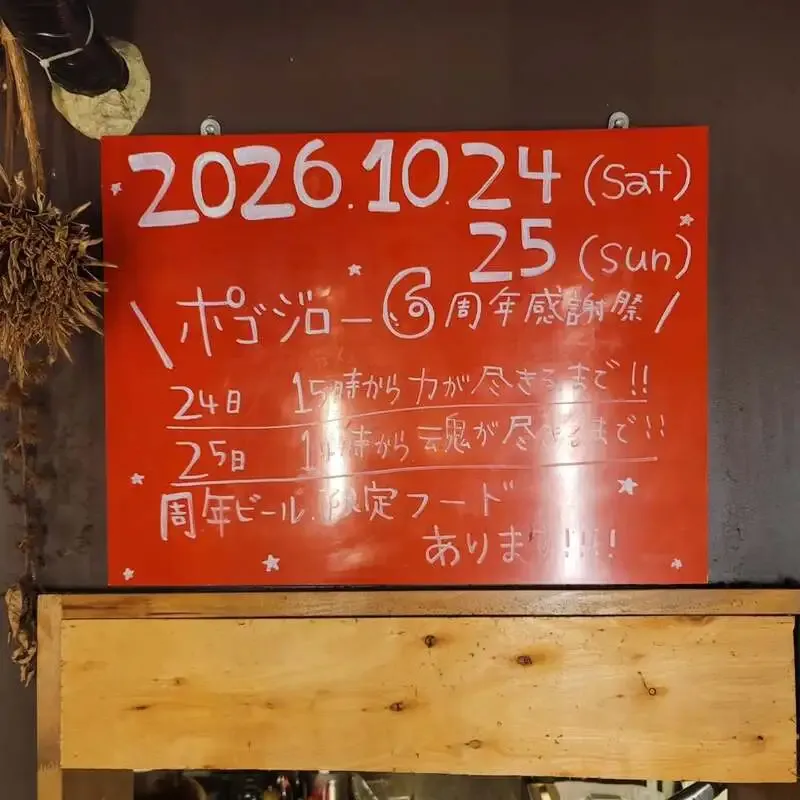 2026.10.24 (Sat)
25 (Sun)
\ ポゴジロー 6周年感謝祭 /
24日 15時から 力が尽きるまで!!
25日 時から 魂が尽きるまで!!
周年ビール、限定フード
あります!!!!